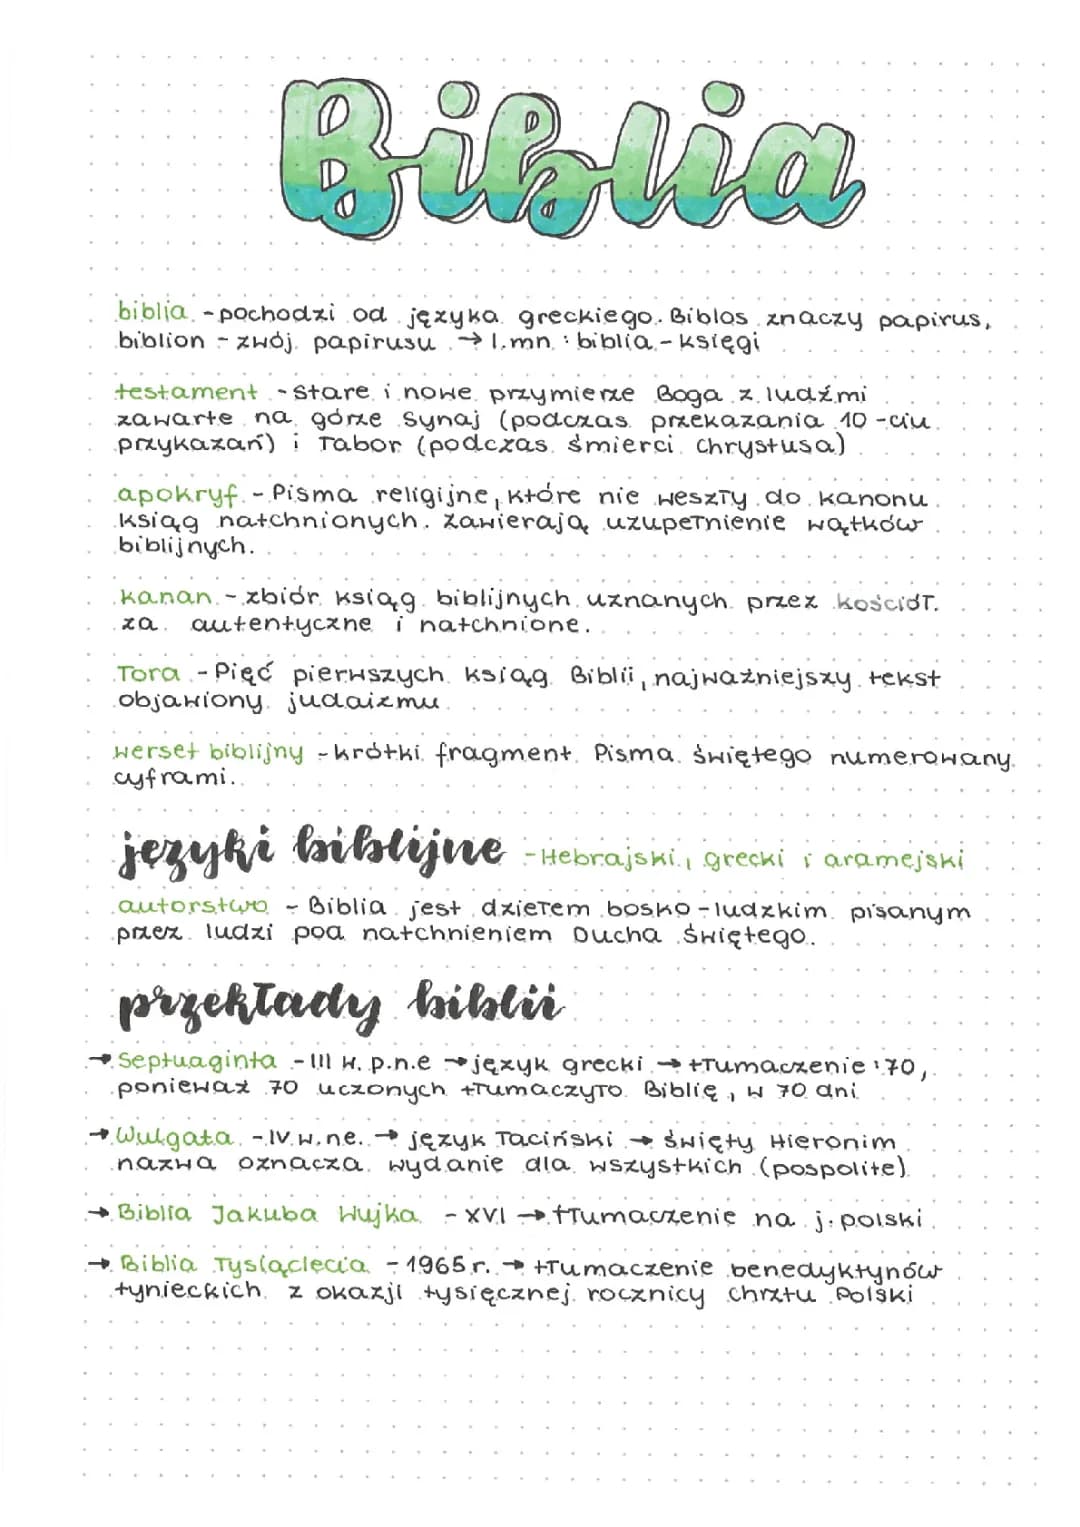 Biblia
biblia - pochodzi od języka greckiego. Biblos znaczy papirus,
biblion - zwój papirusu → l.mn : biblia - księgi
testament - stare i nowe przymierze Boga z ludźmi
zawarte na górze Synaj (podczas przekazania 10-ciu
przykazań) i Tabor (podczas śmierci Chrystusa)
apokryf - Pisma religijne, które nie weszły do kanonu
ksiąg natchnionych. Zawierają uzupełnienie wątków
biblijnych.
kanan - zbiór ksiąg biblijnych uznanych przez kościół
za autentyczne i natchnione.
Tora - Pięć pierwszych ksiąg Biblii, najważniejszy tekst
objawiony judaizmu
werset biblijny - krótki fragment Pisma Świętego numerowany
cyframi.
języki biblijne - Hebrajski, grecki i aramejski
autorstwo - Biblia jest dziełem bosko-ludzkim pisanym
przez ludzi poa natchnieniem Ducha Świętego.
przekłady biblii
→ Septuaginta - III w. p.n.e → język grecki → tłumaczenie : 70,
ponieważ 70 uczonych tłumaczyło Biblię, w 70 dni
→ Wulgata - IV w. ne. → język łaciński → Święty Hieronim
nazwa oznacza wydanie dla wszystkich (pospolite)
→ Biblia Jakuba Wujka - XVI → tłumaczenie na j. polski
→ Biblia Tysiąclecia - 1965 r. → tłumaczenie benedyktynów
tynieckich z okazji tysięcznej rocznicy chrztu Polski